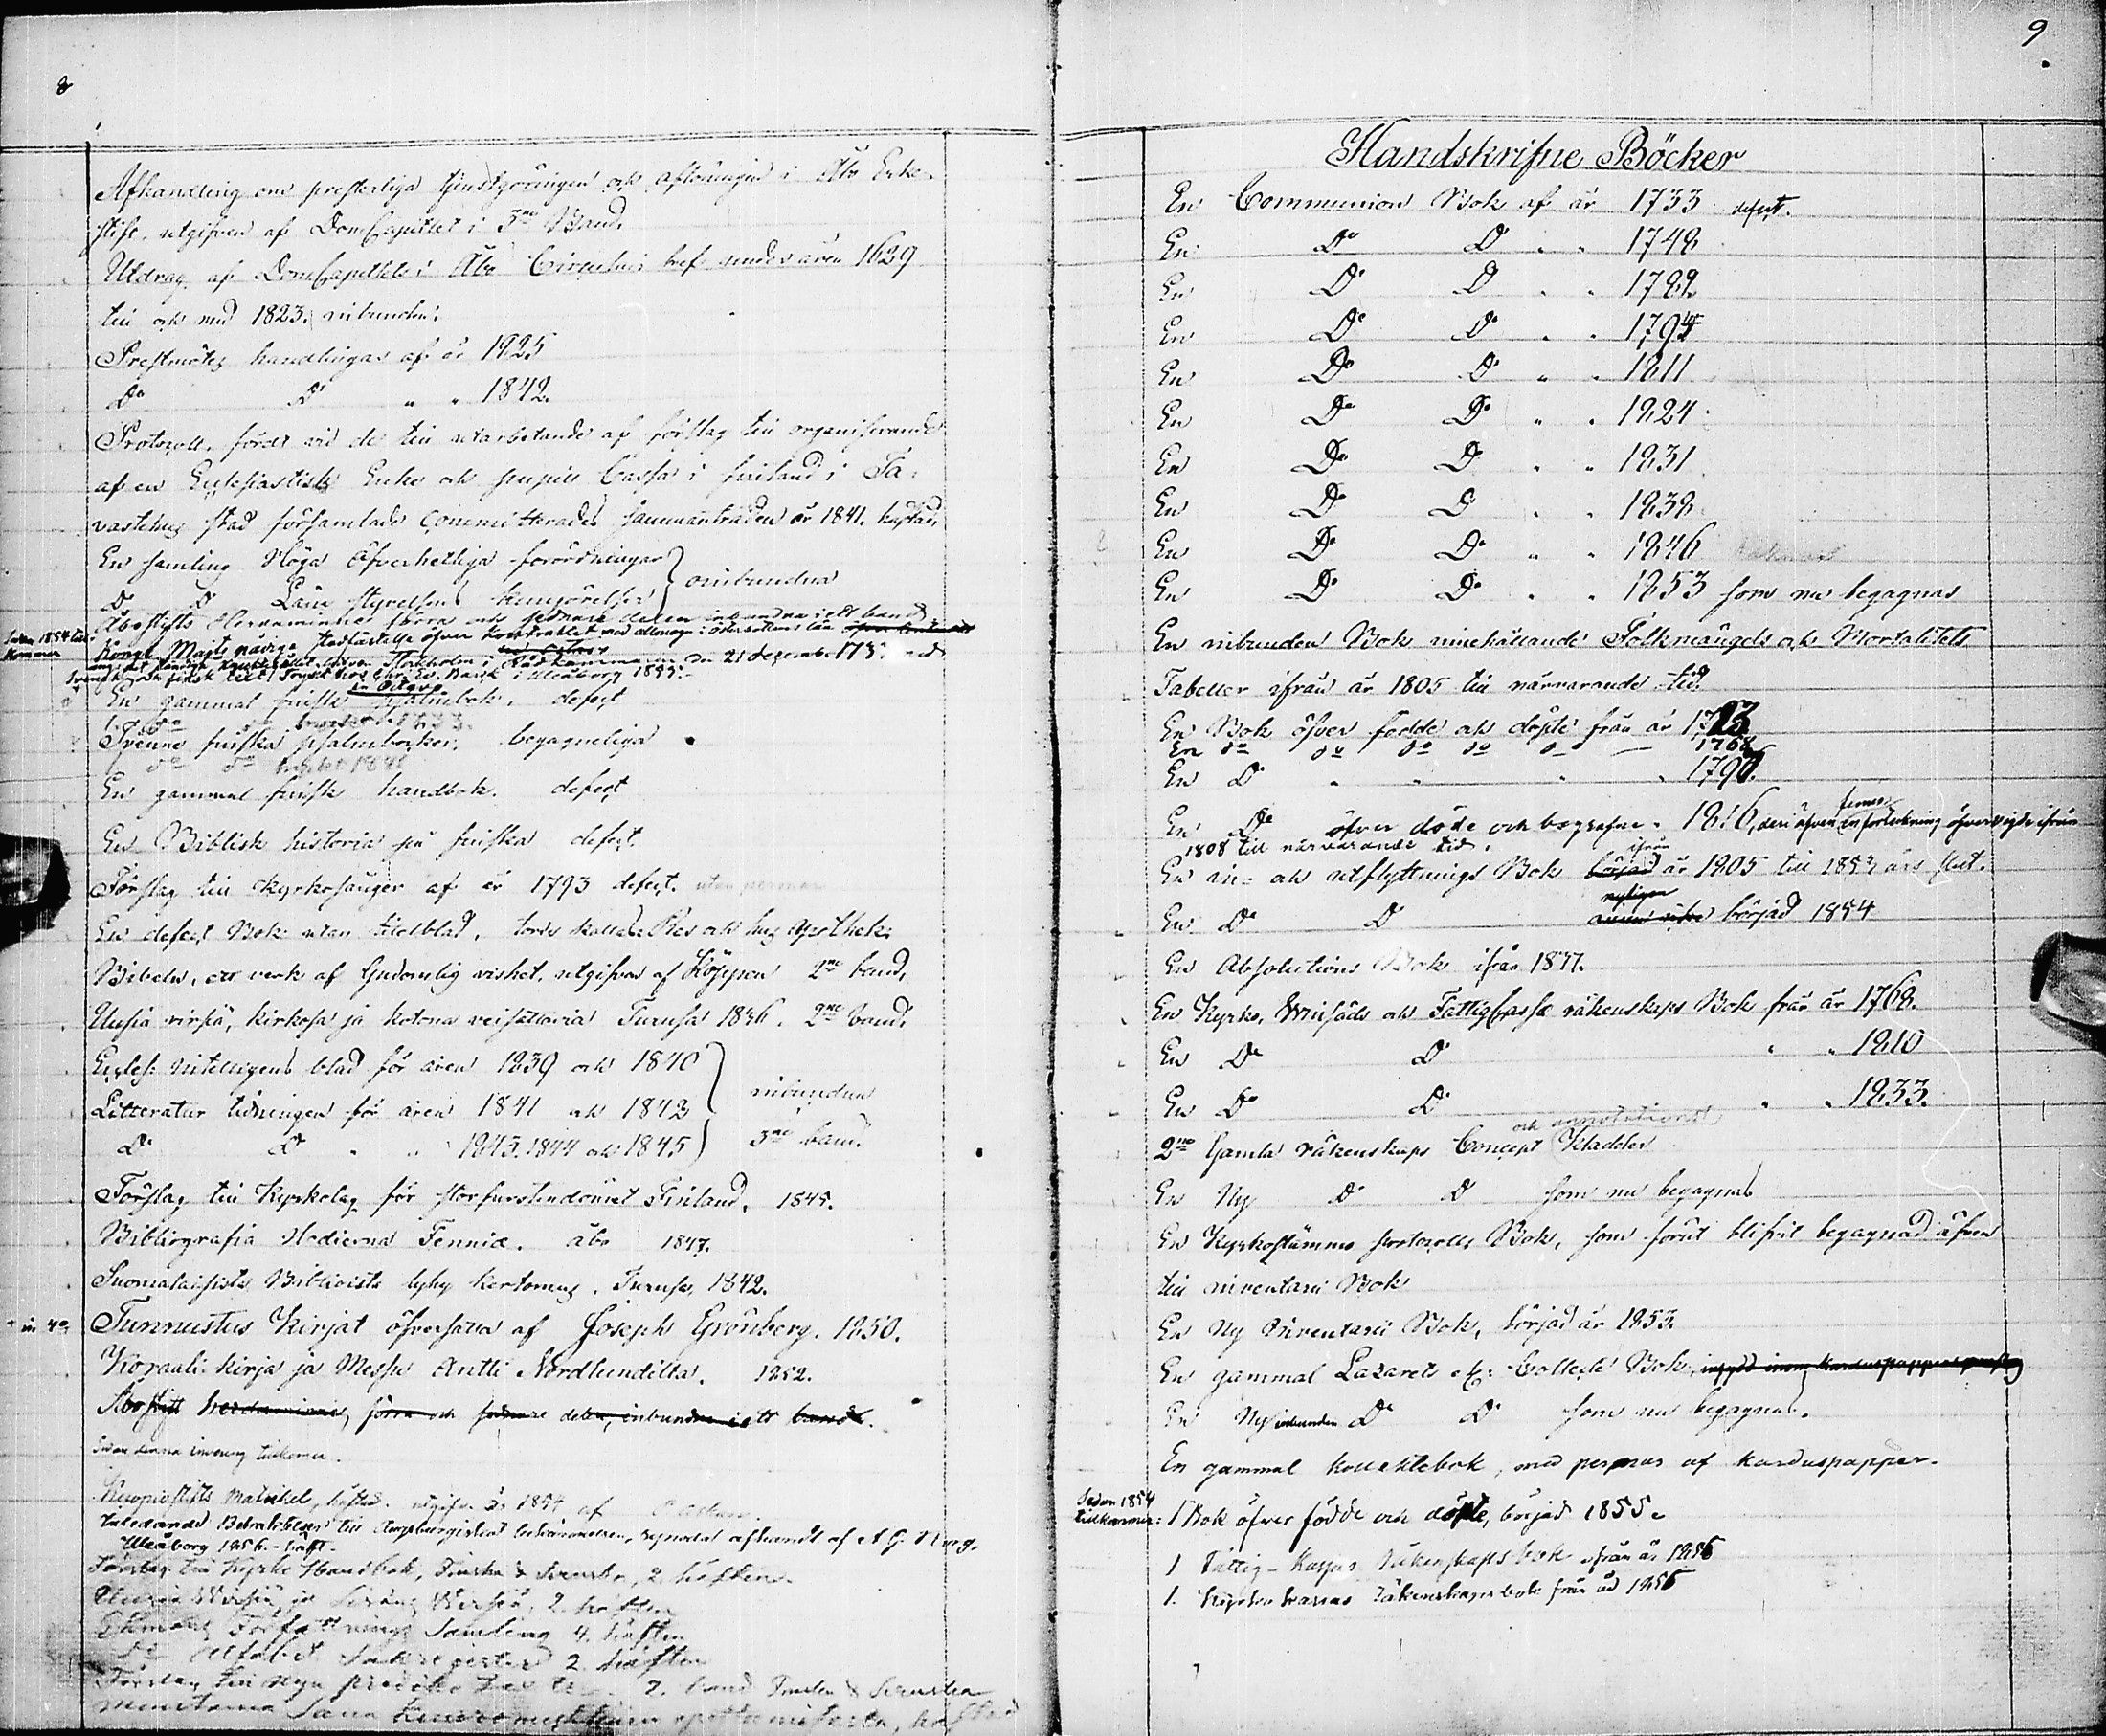 8
Afhandling om presterliga tjenstgöringen och aflöningen i Åbo Erke-
stift, utgifven af DomCapitlet i 3ne Band.
Utdrag af DomCapitlets i Åbo Circulair bref under åren 1629
till och med 1823. inbunden.
Prestmötes handlingar af år 1825
Do Do " " 1842.
Protocoll, fördt vid de till utarbetande af förslag till organiserande
af en Ecclesiastik Enke och pupill Cassa i Finland i Ta-
vastehus stad församlade Committerades sammanträden år 1841. häftad.
En samling Höga Öfverhetliga förordningar } oinbundna
Do Do Läne styrelsens kungörelser
Åbo stifts Herdaminne, förra och sednare delen inbundna i ett band
Sedan 1854 till-
kommer
Kongl Majts nådiga stadfästelse öfver Kontraktet med allmogen i Österbottens län
Stockholm i Rådkammaren den 21 dezember 173
Svensk och finsk text. Tryckt hos Chr. Ev. Barck i Uleåborg 1855.
En gammal finsk psalmbok. defect
Tvenne finska psalmböcker, begagneliga
En gammal finsk handbok. defect
En Biblisk historia på finska defect
Förslag till Kyrkosånger af år 1793 defect. utan permar
En defect Bok utan titelblad, torde kallas Res och hus apothek.
Bibeln, ett verk af Gudomlig vishet, utgifven af Köppen 2ne band.
Uusia virsiä, kirkosa ja kotona veisattavia Turusa 1836. 2ne band.
Eccles. intelligens blad för åren 1839 och 1840
Litteratur tidningen för åren 1841 och 1842 } inbunden
Do Do " " 1843. 1844 och 1845 3ne band.
Förslag till Kyrkolag för storfurstendömet Finland. 1845.
Bibliografia Hodierna Fennia. Åbo 1847.
Suomalaisista Biblioista lyhy kertomus. Turusa, 1842.
in 4o Tunnustus Kirjat öfversatta af Joseph Grönberg. 1850.
Koraali-kirja ja Messu Antti Nordlundilta. 1852.
Åbo stift herdaminne, förra och sednare delen, inbundna i ett band.
Sedan denna invering tillkommer.
Kuopio stifts Matrikel, häftad. utgifv. år 1854 af
Inledande Betraktelser till Augsburgiska bekännelsen, synodal afhandl. af A G
Uleåborg 1856. häft.
Förslag till Kyrko Handbok, Finska & Svenska, 2. häften.
Uusia Wirsiä ja 2. häften
Ekmans Författnings Samling 4. häften
Do Alfabet. Sakregister 2. häften
Förslag till nya 2. band Finska & Svenska

9
Handskrifne Böcker
En Communion Bok af år 1733 defect.
En Do Do " " 1748
En Do Do " " 1782
En Do Do " " 1794
En Do Do " " 1811
En Do Do " " 1824
En Do Do " " 1831
En Do Do " " 1838
En Do Do " " 1846
En Do Do " " 1853 som nu begagnas
En inbunden Bok innehållande Folkmängds och Mortalitets
Tabeller ifrån år 1805 till närvarande tid.
En Bok öfver födde och döpte från år 1723
En do do do do do 1768
En Do " " " " 1790.
En Do öfver döde och begrafne " 1816, deri äfven finnes en förteckning öfver vigde ifrån
1808 till närvarande tid.
En in- och utflyttnings Bok börjad ifrån år 1805 till 1853 års slut.
En Do Do nyligen börjad 1854
En Absolutions Bok ifrån 1877.
En Kyrko, Winsäds och FattigCassæ räkenskaps Bok från år 1768.
En Do Do " " 1810
En Do Do " " 1833.
2ne Gamla räkenskaps Concept och annotations Kladdar
En Ny Do Do som nu begagnas
En Kyrkostämmo protocolls Bok, som förut blifvit begagnad äfven
till inventarii Bok
En Ny Inventarii Bok, börjad år 1853.
En gammal Lazaretts etc: Collecte Bok,
En Ny inbunden Do Do som nu begagnas.
En gammal kollektebok, med permar af karduspapper.
Sedan 1854
tillkommer: 1 Bok öfver födde och döpte, börjad 1855.
1 Fattig-Kassas Räkenskaps bok ifrån år 1856
1. Kyrko kassas Räkenskaps bok från år 1856